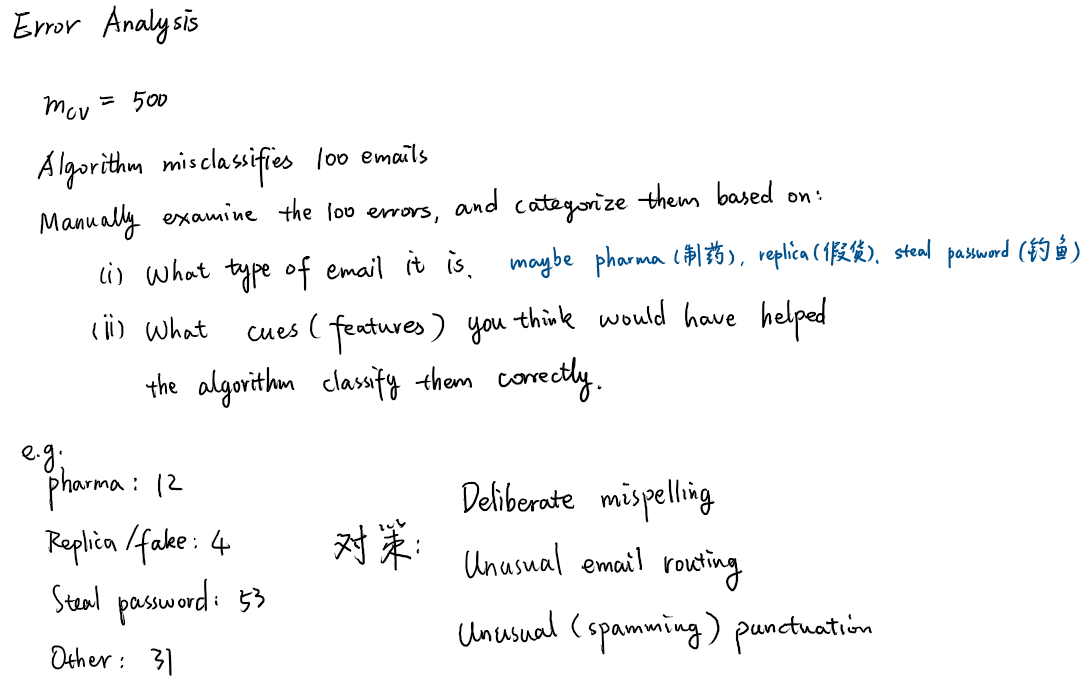 Error Analysis
m_cv = 500
Algorithm misclassifies 100 emails
Manually examine the 100 errors, and categorize them based on:
(i) What type of email it is. maybe pharma (制药), replica (假货), steal password (钓鱼)
(ii) What cues (features) you think would have helped
the algorithm classify them correctly.
e.g.
pharma: 12
Replica/fake: 4
Steal password: 53
Other: 31
对策:
Deliberate mispelling
Unusual email routing
Unusual (spamming) punctuation